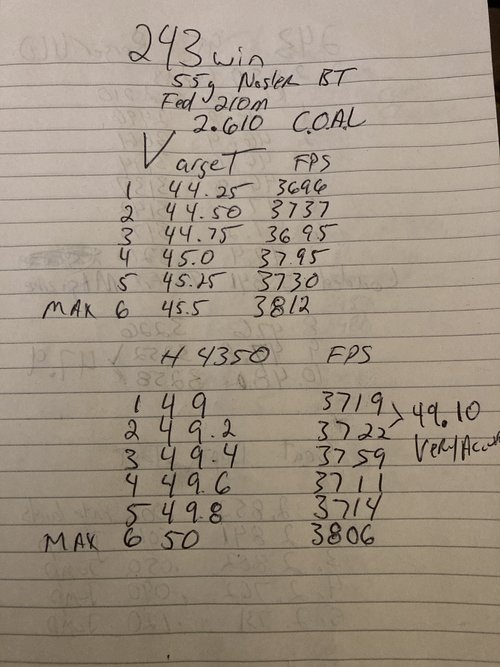 243 win
55g Nosler BT
Fed 210m
2.610 C.O.A.L
Varget FPS
1 44.25 3696
2 44.50 3737
3 44.75 3695
4 45.0 37.95
5 45.25 3730
MAX 6 45.5 3812
H 4350 FPS
1 49 3719
2 49.2 3722 > 49.10
3 49.4 3759 Very/Accu
4 49.6 3711
5 49.8 3714
MAX 6 50 3806